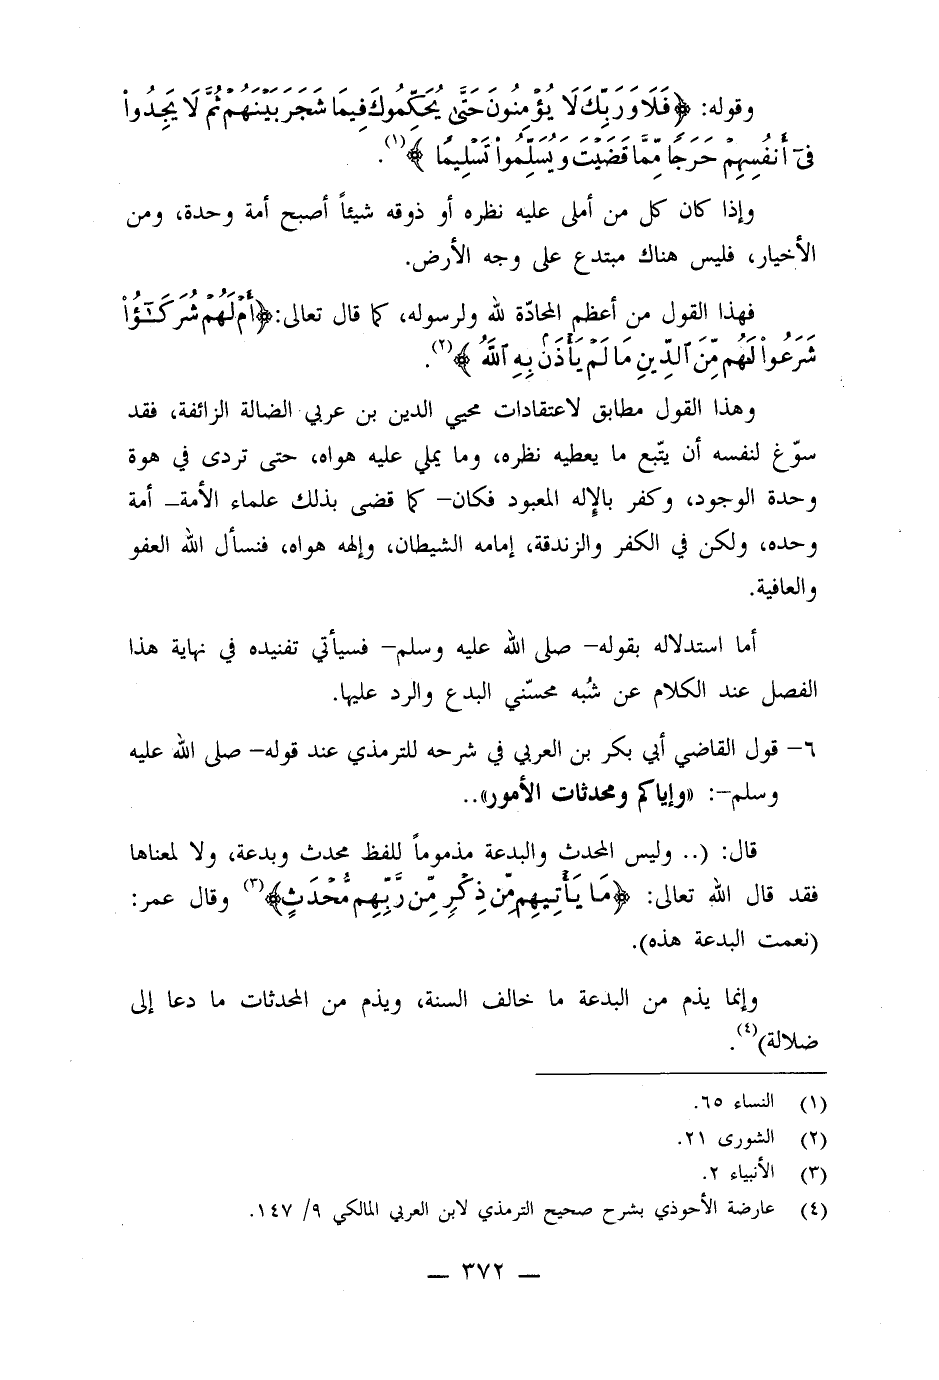 وقوله: ﴿فَلَا وَرَبِّكَ لَا يُؤْمِنُونَ حَتَّىٰ يُحَكِّمُوكَ فِيمَا شَجَرَ بَيْنَهُمْ ثُمَّ لَا يَجِدُوا۟
فِىٓ أَنفُسِهِمْ حَرَجًا مِّمَّا قَضَيْتَ وَيُسَلِّمُوا۟ تَسْلِيمًا﴾(١).
وإذا كان كل من أملى عليه نظره أو ذوقه شيئاً أصبح أمة وحدة، ومن
الأخيار، فليس هناك مبتدع على وجه الأرض.
فهذا القول من أعظم المحادّة لله ولرسوله، كما قال تعالى: ﴿أَمْ لَهُمْ شُرَكَـٰٓؤُا۟
شَرَعُوا۟ لَهُم مِّنَ ٱلدِّينِ مَا لَمْ يَأْذَنۢ بِهِ ٱللَّهُ﴾(٢).
وهذا القول مطابق لاعتقادات محيي الدين بن عربي الضالة الزائفة، فقد
سوّغ لنفسه أن يتّبع ما يعطيه نظره، وما يملي عليه هواه، حتى تردى في هوة
وحدة الوجود، وكفر بالإله المعبود فكان– كما قضى بذلك علماء الأمة– أمة
وحده، ولكن في الكفر والزندقة، إمامه الشيطان، وإلهه هواه، فنسأل الله العفو
والعافية.
أما استدلاله بقوله– صلى الله عليه وسلم– فسيأتي تفنيده في نهاية هذا
الفصل عند الكلام عن شُبه محسّني البدع والرد عليها.
٦– قول القاضي أبي بكر بن العربي في شرحه للترمذي عند قوله– صلى الله عليه
وسلم–: «وإياكم ومحدثات الأمور»..
قال: (.. وليس المحدث والبدعة مذموماً للفظ محدث وبدعة، ولا لمعناها
فقد قال الله تعالى: ﴿مَا يَأْتِيهِم مِّن ذِكْرٍ مِّن رَّبِّهِم مُّحْدَثٍ﴾(٣) وقال عمر:
(نعمت البدعة هذه).
وإنما يذم من البدعة ما خالف السنة، ويذم من المحدثات ما دعا إلى
ضلالة)(٤).
(١) النساء ٦٥.
(٢) الشورى ٢١.
(٣) الأنبياء ٢.
(٤) عارضة الأحوذي بشرح صحيح الترمذي لابن العربي المالكي ٩/ ١٤٧.
– ٣٧٢ –